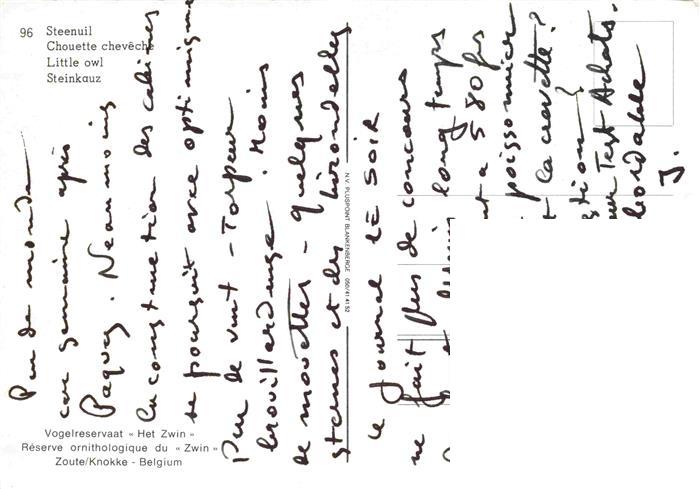 96 Steenuil
Chouette chevêche
Little owl
Steinkauz
Peu de monde
car semaine après
Pâques. Néanmoins
la construction des cabines
se poursuit avec optimisme
Peu de vent - Torpeur
brouillardeuse. Moins
de mouettes - quelques
sternes et des hirondelles
N.V. PLUSPOINT BLANKENBERGE 050/41 41 52
le journal LE SOIR
ne fait plus de concours
long temps
5 80 frs
poissonnier
la crevette ?
stion
Test Achats.
bordable
J.
Vogelreservaat « Het Zwin »
Réserve ornithologique du « Zwin »
Zoute/Knokke - Belgium